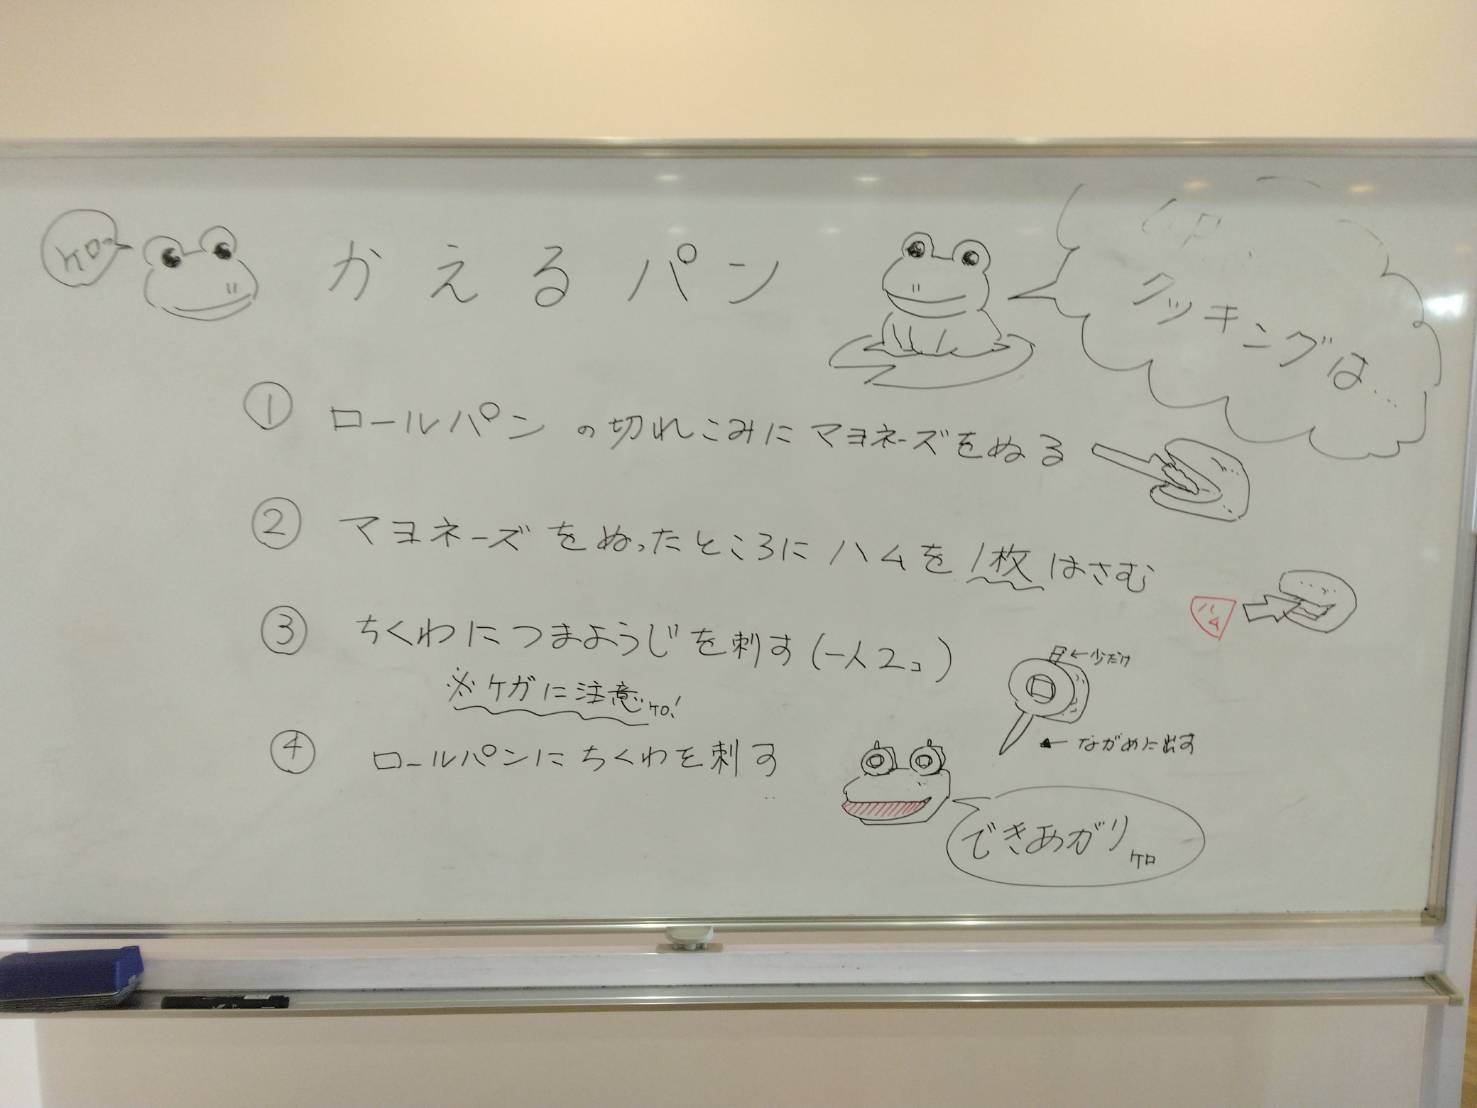 ケロ
かえるパン
クッキングは...
① ロールパンの切れこみにマヨネーズをぬる
② マヨネーズをぬったところにハムを1枚はさむ
ハム
③ ちくわにつまようじを刺す(一人2コ)
←少だけ
※ケガに注意ケロ!
←ながめに出す
④ ロールパンにちくわを刺す
できあがりケロ